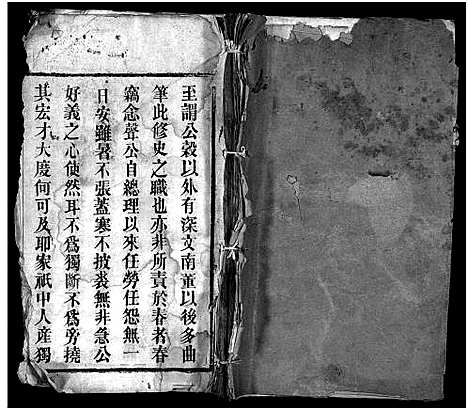 至謂公穀以外有深文南董以後多曲
筆此修史之職也亦非所責於春者春
竊念聲公自總理以來任勞任怨無一
日安雖暑不張蓋寒不披裘無非急公
好義之心使然耳不爲獨斷不爲旁撓
其宏才大度何可及耶家祇中人産獨